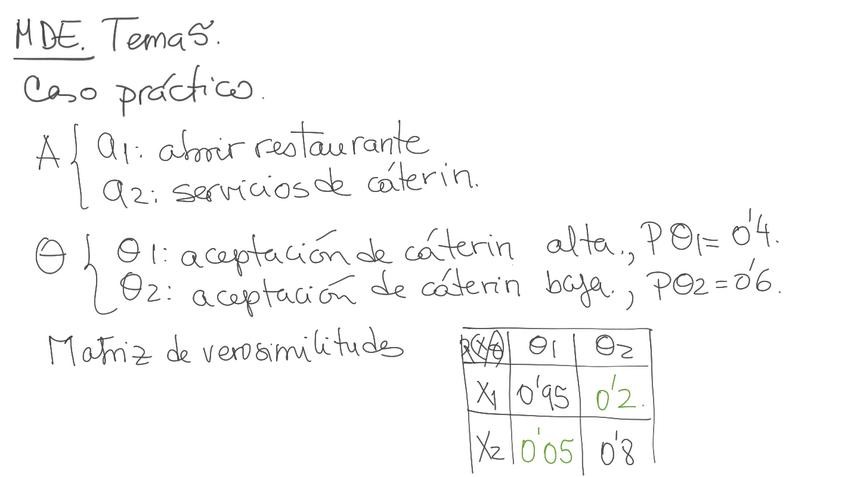 MDE. Tema 5.
Caso práctico.
A { a1: abrir restaurante
a2: servicios de cáterin.
Θ { Θ1: aceptación de cáterin alta., PΘ1= 0'4.
Θ2: aceptación de cáterin baja., PΘ2=0'6.
Matriz de verosimilitudes
P(X/Θ) Θ1 Θ2
X1 0'95 0'2.
X2 0'05 0'8